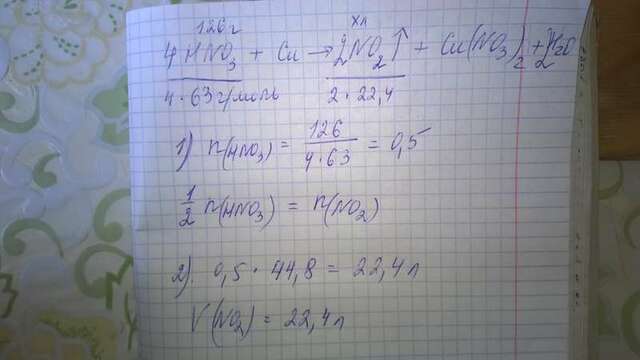 126 г x л
4 HNO₃ + Cu → 2NO₂↑ + Cu(NO₃)₂ + 2H₂O
4 · 63 г/моль 2 · 22,4
1) n(HNO₃) = 126 / 4 · 63 = 0,5
1/2 n(HNO₃) = n(NO₂)
2) 0,5 · 44,8 = 22,4 л
V(NO₂) = 22,4 л